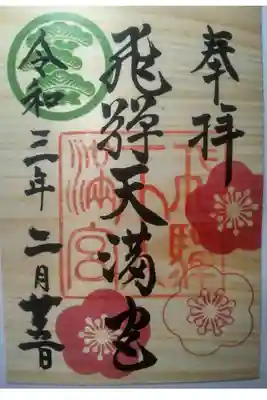 奉拝
飛騨天満宮
令和三年二月廿五日
飛騨天満宮